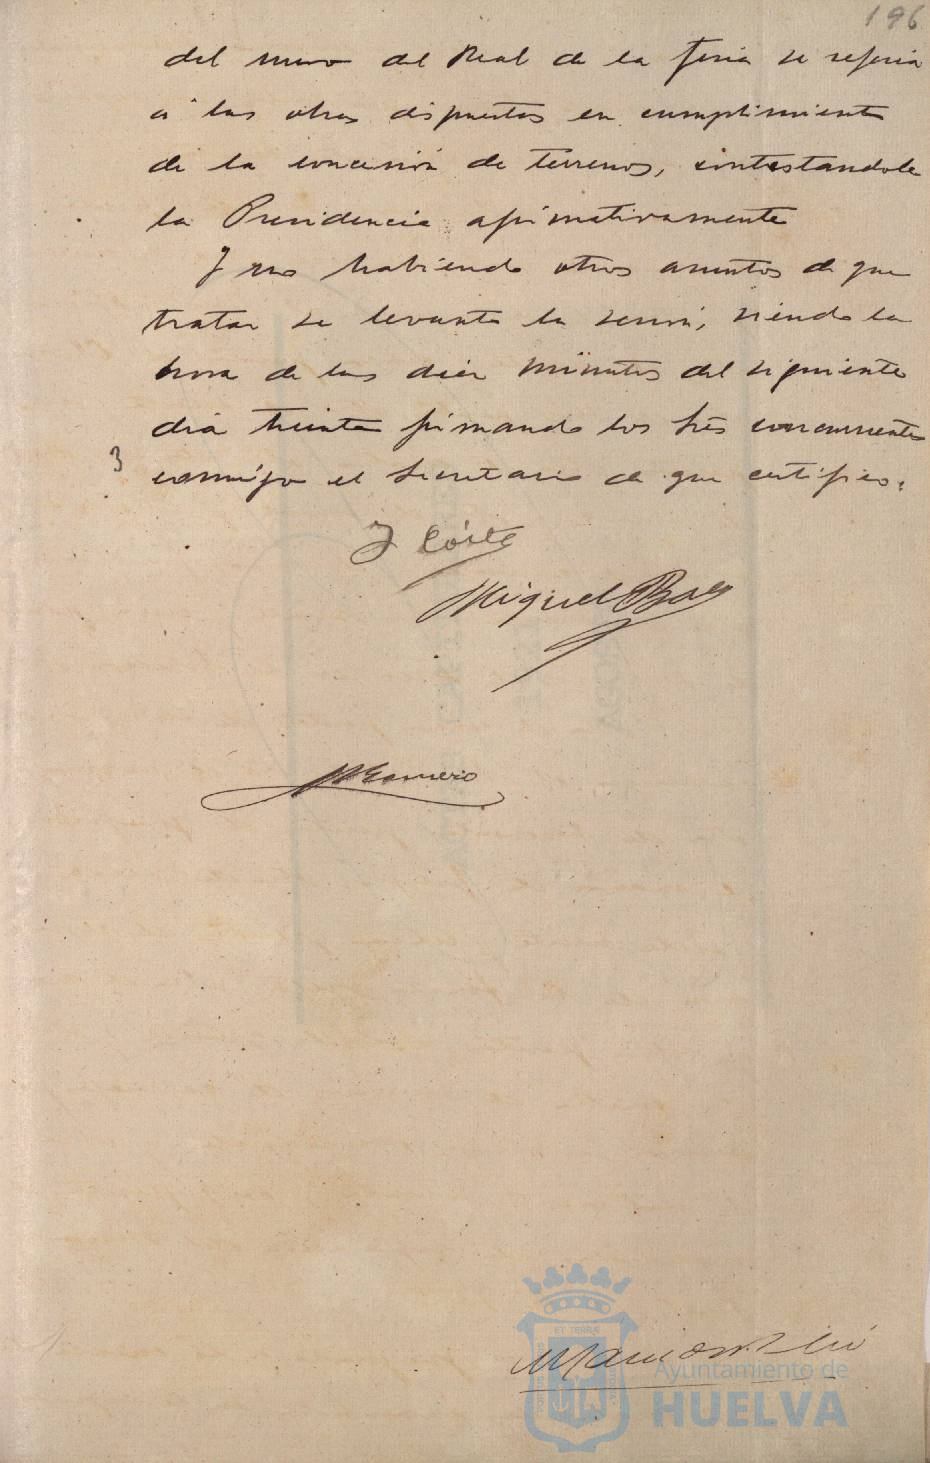 196
del muro del Real de la feria se referia
á las obras dispuestas en cumplimiento
de la concesión de terrenos, contestandole
la Presidencia afirmativamente
Y no habiendo otros asuntos de que
tratar se levanto la sesión, siendo la
hora de las diez minutos del siguiente
dia treinta firmando los Sres concurrentes
3
conmigo el Secretario de que certifico.
J Cóste
Miguel Baez
Romero
ET TERRAE
Ayuntamiento de
HUELVA